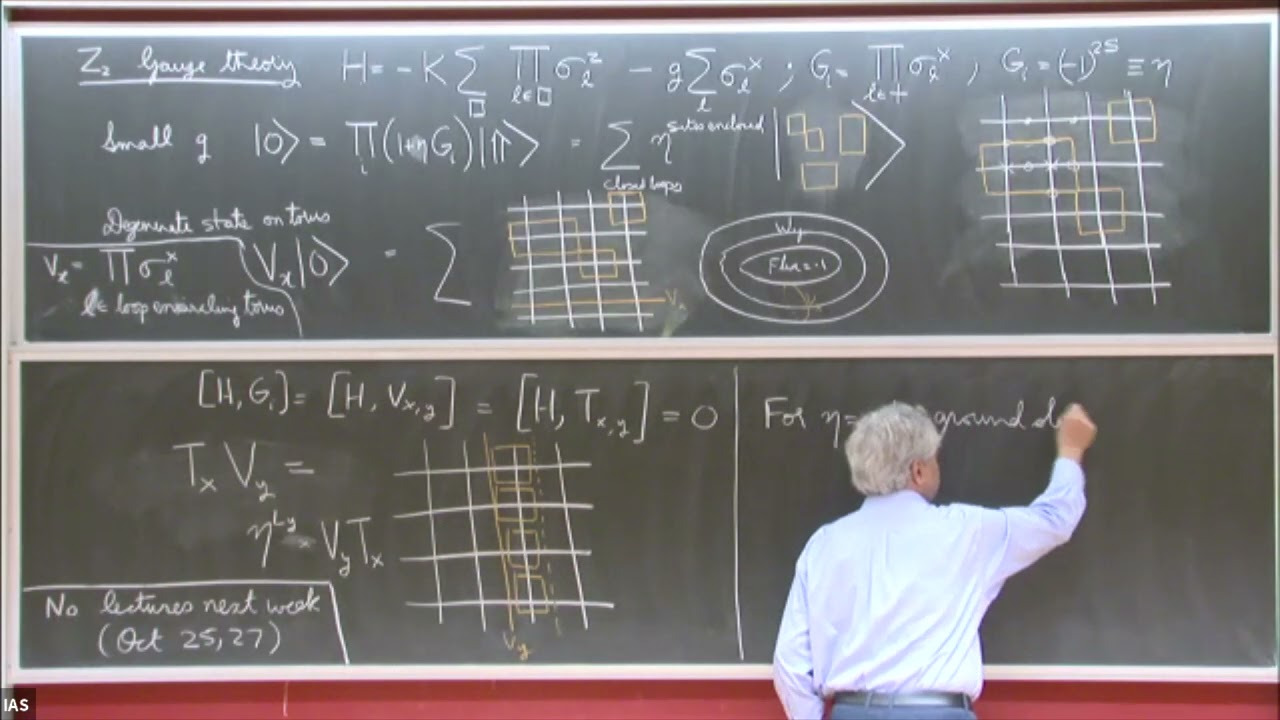 Z₂ Gauge theory H = - K ∑_□ ∏_{l∈□} σ_l^z - g ∑_l σ_l^x ; G_i = ∏_{l∈+} σ_l^x , G_i = (-1)^{2S} ≡ η
Small g |0⟩ = ∏_i (1+ηG_i) |⇑⟩ = ∑_{closed loops} η^{sites enclosed} | ⟩
Degenerate state on torus
V_x = ∏ σ_l^x
l ∈ loop encircling torus
V_x |0⟩ = ∑
V
W_y
Flux = -1
[H, G_i] = [H, V_{x,y}] = [H, T_{x,y}] = 0
T_x V_y =
η^{L_y} V_y T_x
V_y
No lectures next week
(Oct 25, 27)
For η = ground
IAS